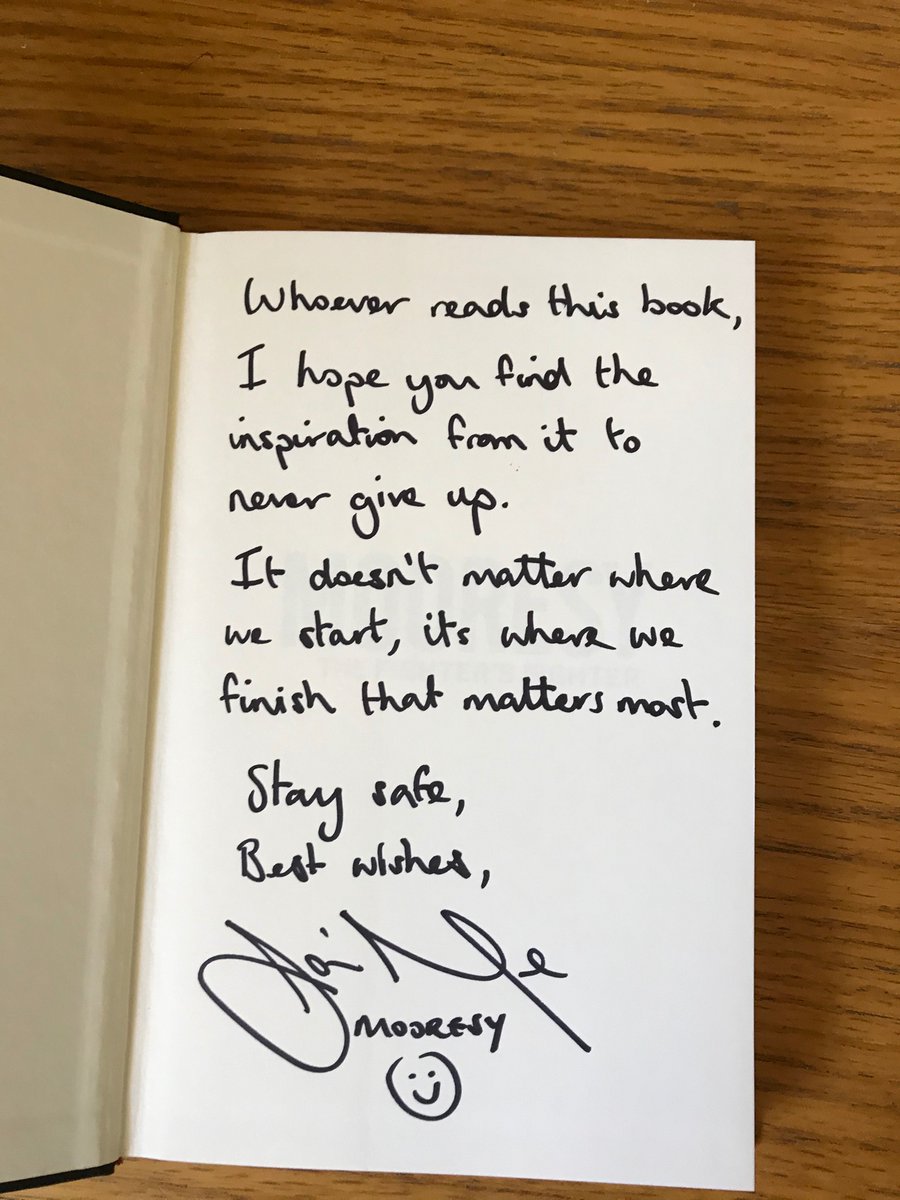 Whoever reads this book,
I hope you find the
inspiration from it to
never give up.
It doesn't matter where
we start, its where we
finish that matters most.
Stay safe,
Best wishes,
MOORESY
THE FIGHTER'S FIGHTER
MOORESY